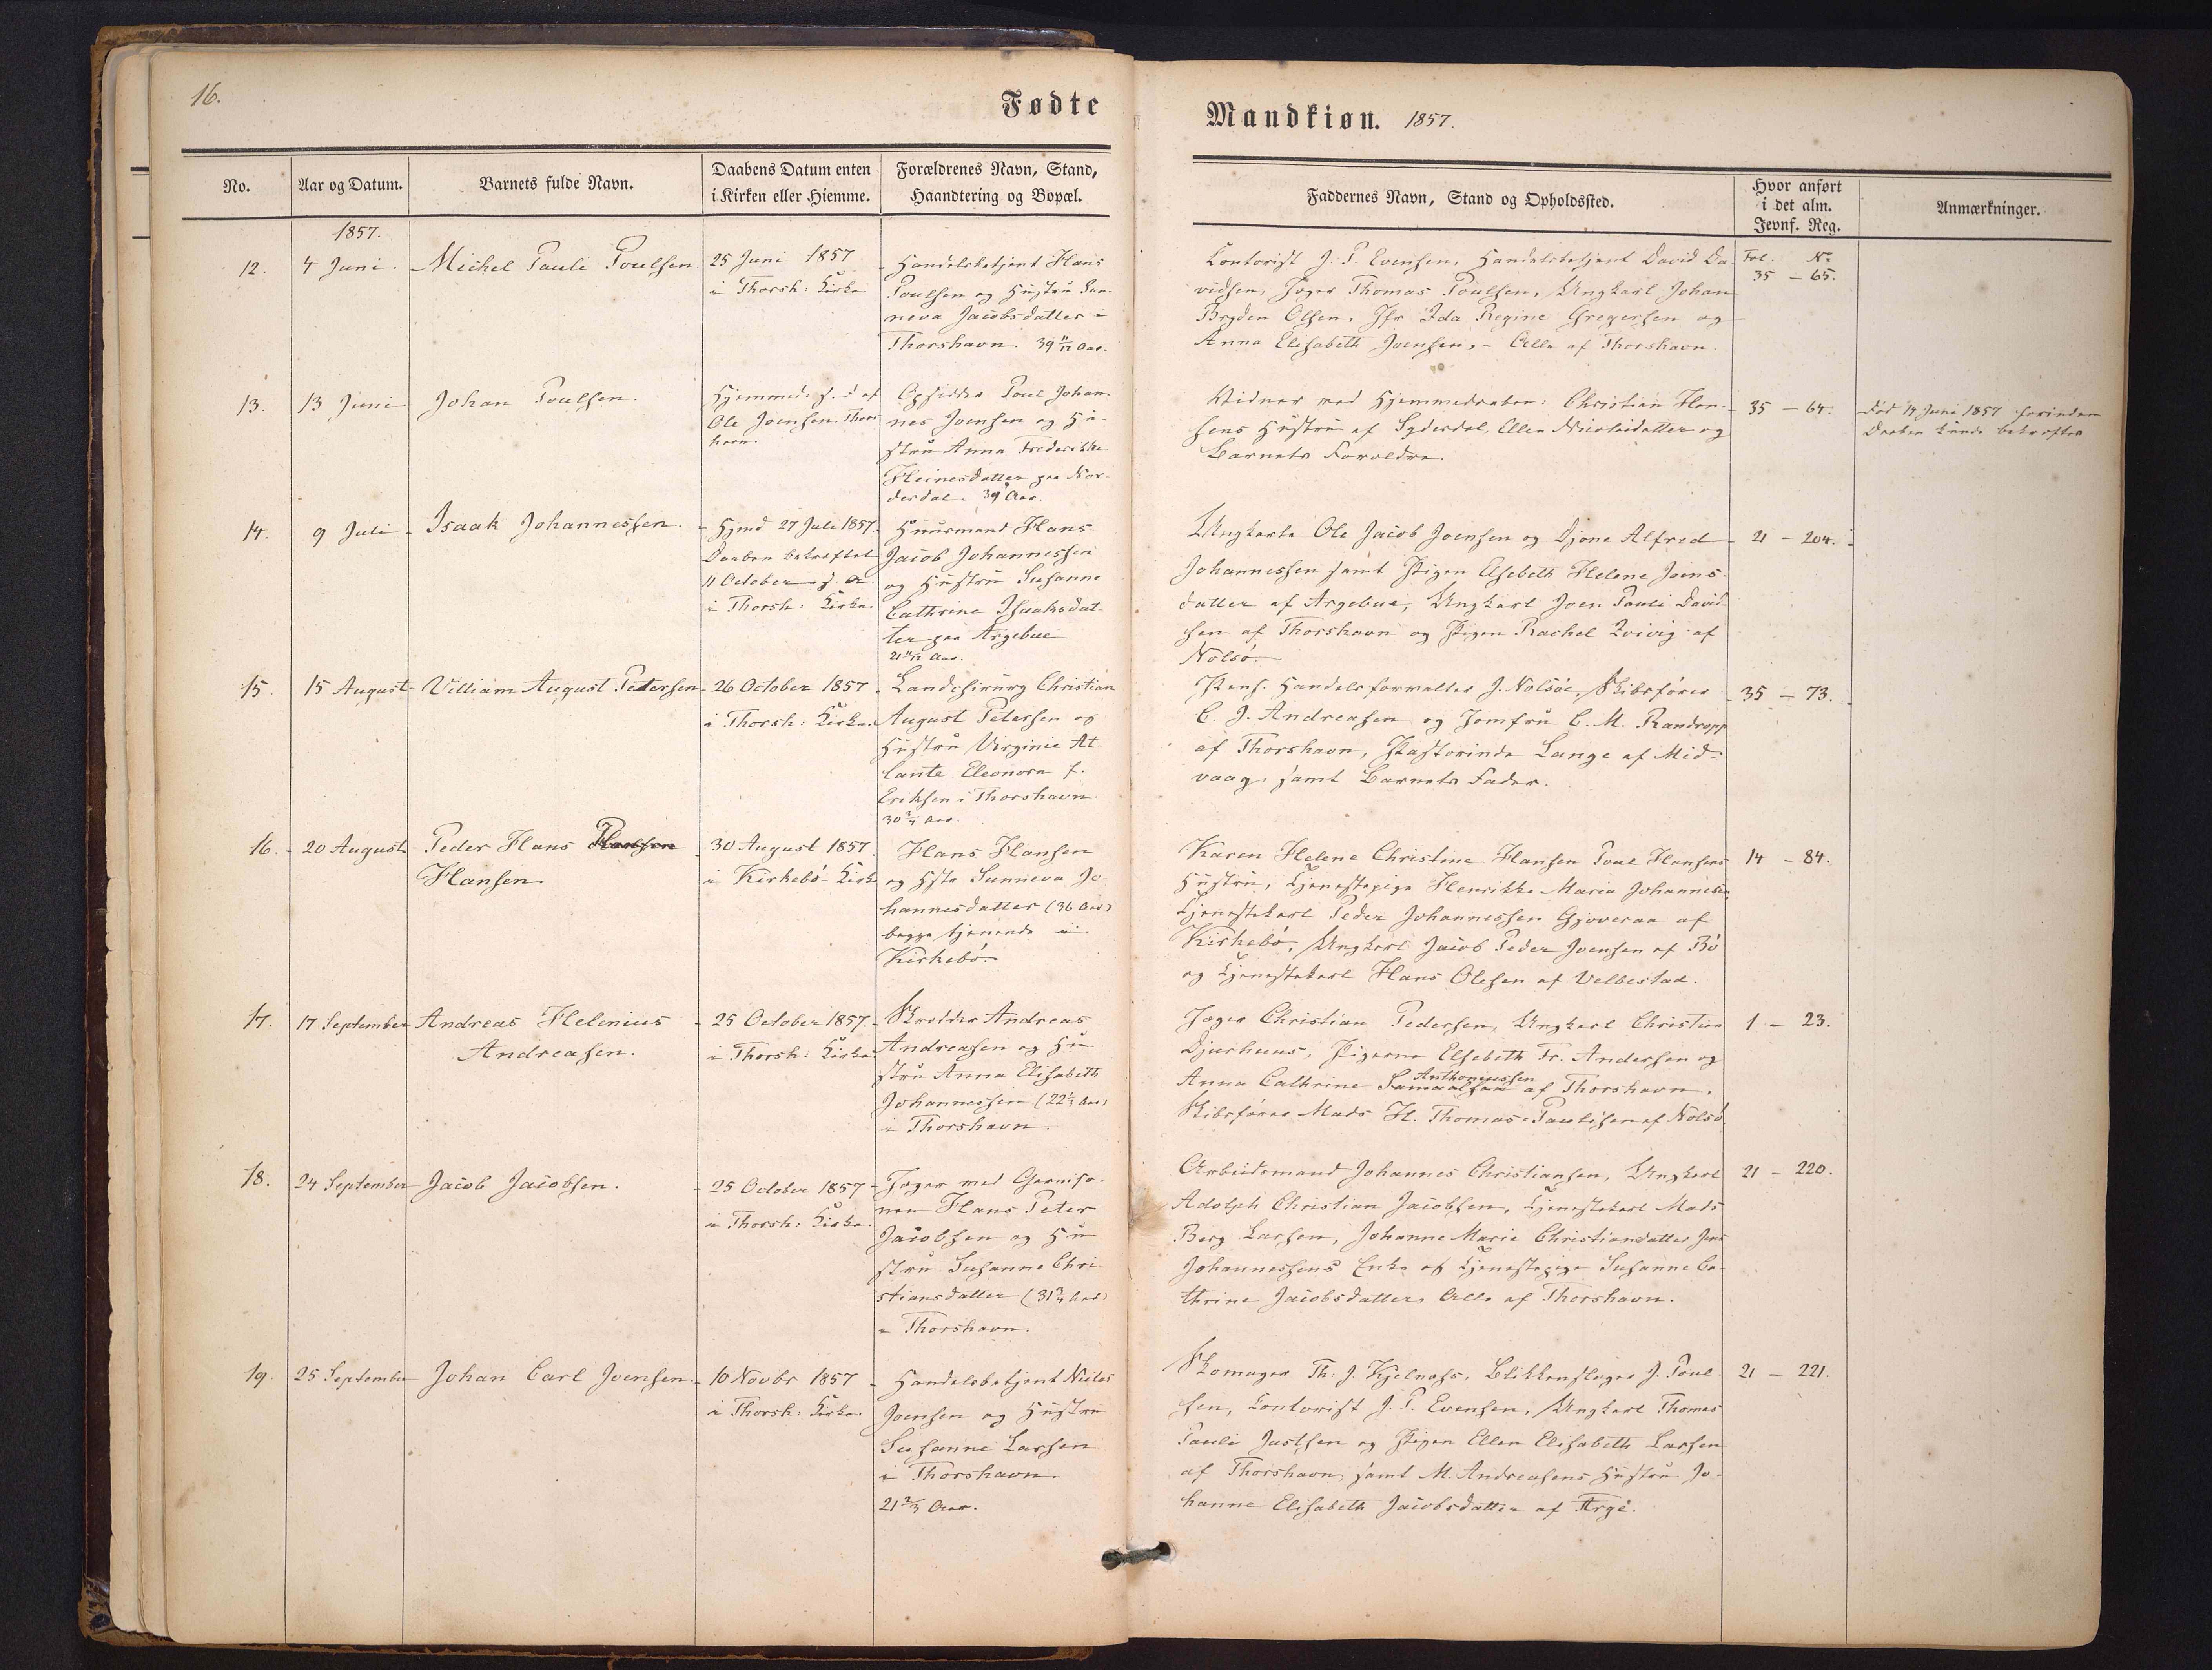 16.
Fødte
Mandkiøn. 1857.
No.
Aar og Datum.
Barnets fulde Navn.
Daabens Datum enten
i Kirken eller Hiemme.
Forældrenes Navn, Stand,
Haandtering og Bopæl.
Faddernes Navn, Stand og Opholdssted.
Hvor anført
i det alm.
Jevnf. Reg.
Anmærkninger.
1857.
12.
4 Juni.
Michel Pauli Poulsen
25 Juni 1857
i Thorsh: Kirke
Handelsbetjent Hans
Poulsen og Hustru Sun-
neva Jacobsdatter i
Thorshavn. 39 11/12 Aar.
Kontorist J. P. Evensen, Handelsbetjent David Da-
vidsen, Jæger Thomas Poulsen, Ungkarl Johan
Bryden Olsen, Jfr Ida Regine Gregersen og
Anna Elisabeth Joensen, - Alle af Thorshavn.
Fol. No
35 - 65.
13.
13 Juni
Johan Poulsen.
Hjemmed. s. d. af
Ole Joensen. Thors
havn.
Opsidder Poul Johan-
nes Joensen og Hu-
stru Anna Frederikke
Heinesdatter paa Nor-
derdal. 39 Aar.
Vidner ved Hjemmedaaben: Christian Han-
sens Hustru af Syderdal, Ellen Nicolaidatter og
Barnets Forældre.
35 - 64.
Død 14 Juni 1857 forinden
Daaben kunde bekræftes
14.
9 Juli
Isaak Johannessen.
Hjmd 27 Juli 1857.
Daaben bekræftet
11 October s. A.
i Thorsh: Kirke.
Huusmand Hans
Jacob Johannessen
og Hustru Susanne
Cathrine Isaaksdat-
ter paa Argebue
21 11/12 Aar.
Ungkarle Ole Jacob Joensen og Djone Alfred
Johannessen samt Pigen Elsebeth Helene Joens-
datter af Argebue, Ungkarl Joen Pauli David-
sen af Thorshavn og Pigen Rachel Qvivig af
Nolsö.
21 - 204.
15.
15 August
Villiam August Petersen
26 October 1857
i Thorsh: Kirke.
Landchirurg Christian
August Petersen og
Hustru Virginie At-
lante Eleonora f.
Eriksen i Thorshavn
30 3/4 Aar.
Pens. Handelsforvalter J. Nolsöe, Skibsförer
C. J. Andreasen og Jomfru C. M. Randropp
af Thorshavn, Pastorinde Lange af Mid-
vaag, samt Barnets Fader.
35 - 73.
16.
20 August
Peder Hans Hansen
Hansen.
30 August 1857
i Kirkebö Kirke
Hans Hansen
og Hstr Sunneva Jo-
hannesdatter (36 Aar)
begge tjenende i
Kirkebö.
Karen Helene Christine Hansen Poul Hansens
Hustru, Tjenestepige Henrikke Maria Johannesen,
Tjenestekarl Peder Johannessen Gjoveraa af
Kirkebö, Ungkarl Jacob Peder Joensen af Bö
og Tjenestekarl Hans Olesen af Velbestad.
14 - 84.
17.
17 September
Andreas Helenius
Andreasen.
25 October 1857.
i Thorsh: Kirke
Skrædder Andreas
Andreasen og Hu-
stru Anna Elisabeth
Johannessen (22 1/2 Aar)
i Thorshavn.
Jæger Christian Pedersen, Ungkarl Christian
Djurhuus, Pigerne Elsebeth Fr. Andersen og
Anthoniussen
Anna Cathrine Samuelsen af Thorshavn.
Skibsförer Mads H. Thomas Paulisen af Nolsö
1 - 23.
18.
24 September
Jacob Jacobsen.
25 October 1857
i Thorsh: Kirke.
Jæger ved Garniso-
nen Hans Peter
Jacobsen og Hu-
stru Susanne Chri-
stiansdatter (31 3/4 Aar)
i Thorshavn.
Arbeidsmand Johannes Christiansen, Ungkarl
Adolph Christian Jacobsen, Tjenestekarl Mads
Berg Larsen, Johanne Marie Christiansdatter Jens
Johannessens Enke og Tjenestepige Susanne Ca-
thrine Jacobsdatter, Alle af Thorshavn.
21 - 220.
19.
25 September
Johan Carl Joensen
10 Novbr 1857
i Thorsh: Kirke.
Handelsbetjent Niclas
Joensen og Hustru
Susanne Larsen
i Thorshavn.
21 2/3 Aar.
Skomager Th. J. Kjelnæs, Blikkenslager J. Poul-
sen, Kontorist J. P. Evensen, Ungkarl Thomas
Pauli Justsen og Pigen Ellen Elisabeth Larsen
af Thorshavn, samt M. Andreasens Hustru Jo-
hanne Elisabeth Jacobsdatter af Arge.
21 - 221.